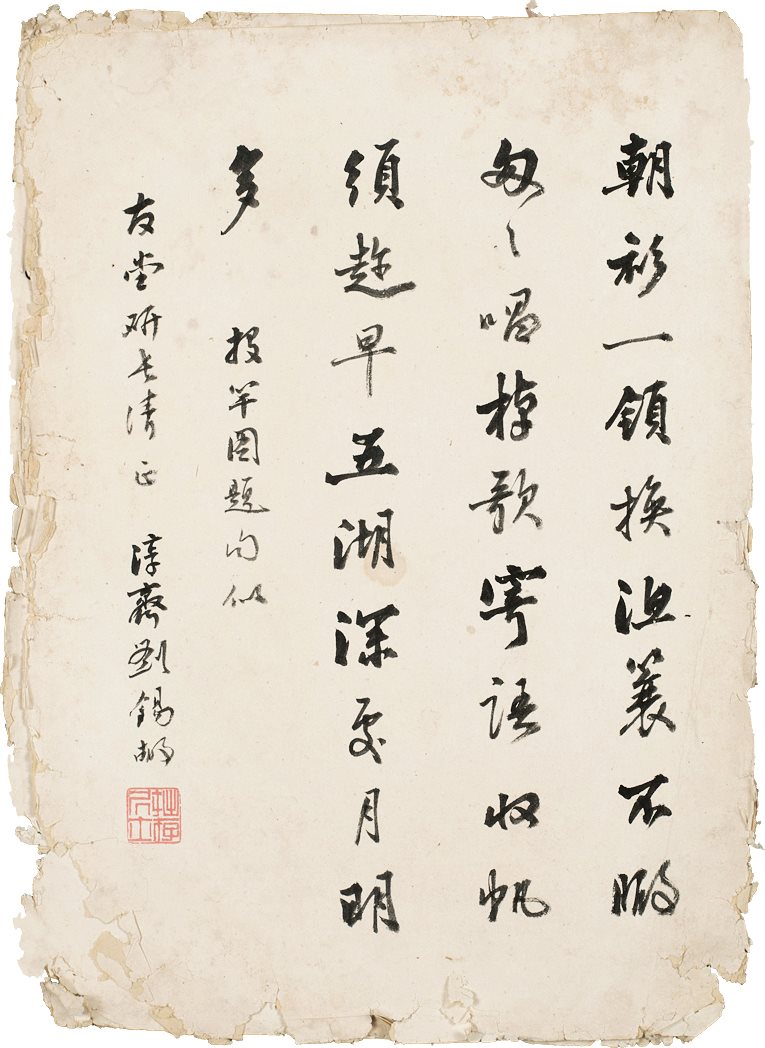 朝衫一領換漁蓑不暇
匆々唱棹歌寄語收帆
須趁早五湖深處月明
多　投竿圖題句似
友堂研長清正　淳齋劉錫嘏
拙存居士